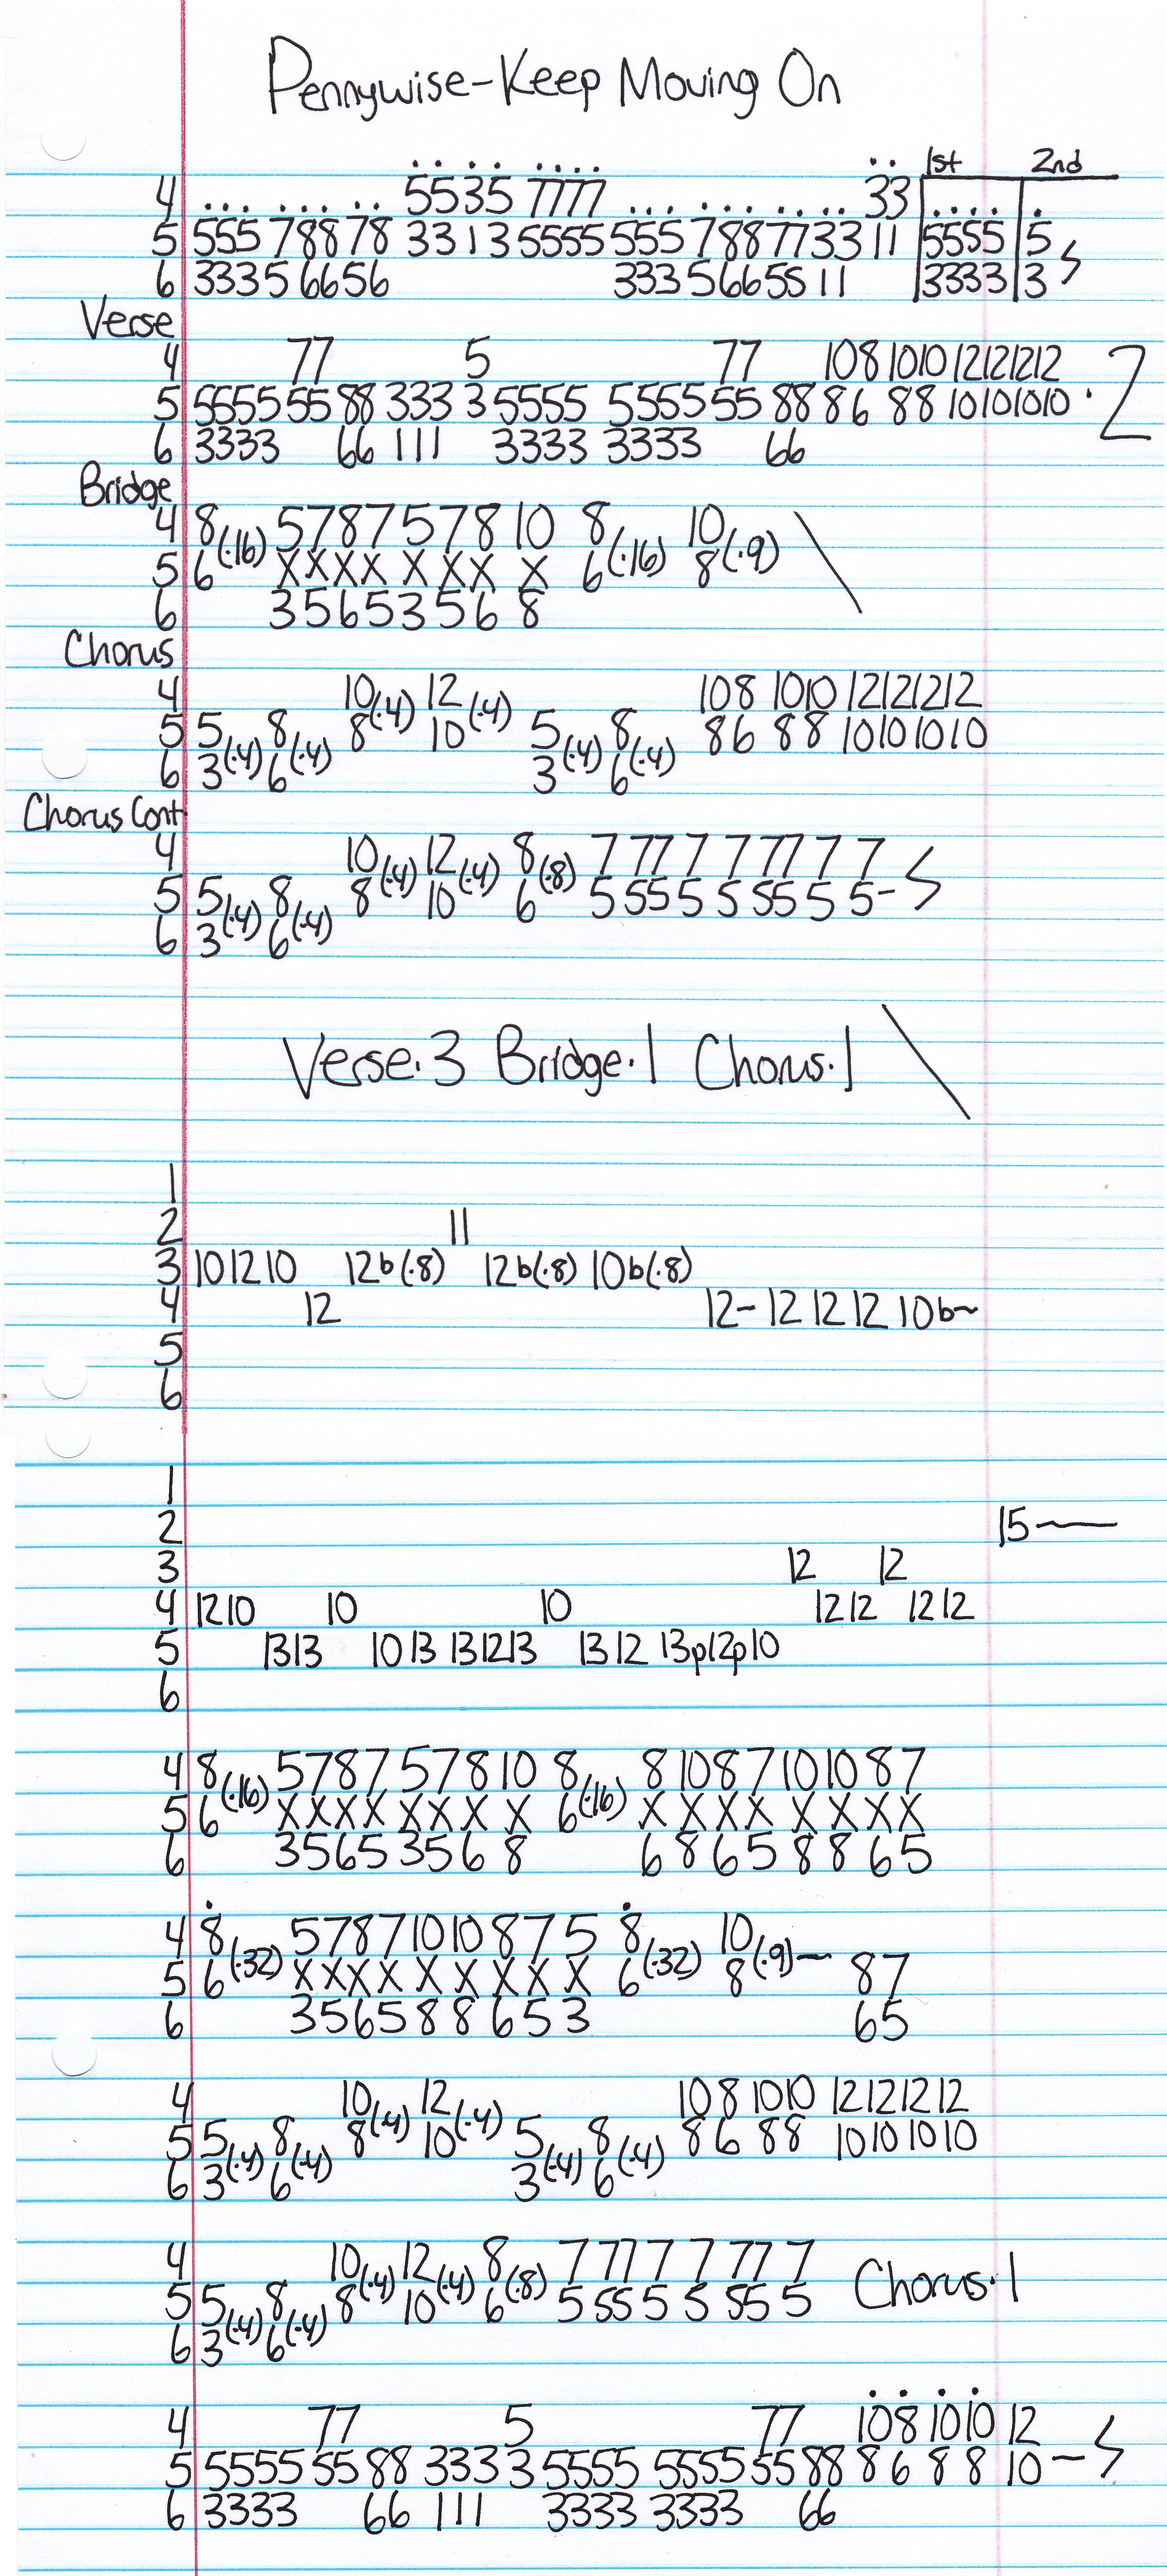 Pennywise-Keep Moving On
1st 2nd
4 5535 7777 33
5 555 78878 3313 5555 555 7887733 11 5555 5
6 3335 6656 333 5665511 3333 3
Verse
4 77 5 77 108 1010 12121212
5 5555 55 88 333 3 5555 5555 55 88 86 88 10101010 · 2
6 3333 66 111 3333 3333 66
Bridge
4 8 5787578 10 8 10
5 6 (·16) XXXX X XX X 6 (·16) 8 (·9)
6 3565356 8
Chorus
4 10 (·4) 12 (·4) 108 1010 12121212
5 5 (·4) 8 (·4) 8 10 5 (·4) 8 (·4) 86 88 10101010
6 3 6 3 6
Chorus Cont
4 10 (·4) 12 (·4) 8 (·8) 7 77 7 7 77 7 7
5 5 (·4) 8 (·4) 8 10 6 5 55 5 5 55 5 5-
6 3 6
Verse·3 Bridge·1 Chorus·1
1
2 11
3 10 12 10 12b(·8) 12b(·8) 10b(·8)
4 12 12- 12 12 12 10b~
5
6
1
2 15
3 12 12
4 12 10 10 10 12 12 12 12
5 13 13 10 13 13 12 13 13 12 13p12p10
6
4 8 (·16) 5787578 10 8 (·16) 8 10 8 7 10 10 8 7
5 6 XXXX XXX X 6 X X X X X X X X
6 3565 356 8 6 8 6 5 8 8 6 5
4 8 (·32) 5787 10 10 8 7 5 8 (·32) 10 (·9)
5 6 XXXX X X X X X 6 8 87
6 3565 8 8 6 5 3 65
4 10 (·4) 12 (·4) 10 8 1010 12121212
5 5 (·4) 8 (·4) 8 10 5 (·4) 8 (·4) 8 6 88 10101010
6 3 6 3 6
4 10 (·4) 12 (·4) 8 (·8) 7 77 7 7 77 7 Chorus·1
5 5 (·4) 8 (·4) 8 10 6 5 55 5 5 55 5
6 3 6
4 77 5 77 108 1010 12
5 5555 55 88 333 3 5555 5555 55 88 8 6 8 8 10-
6 3333 66 111 3333 3333 66